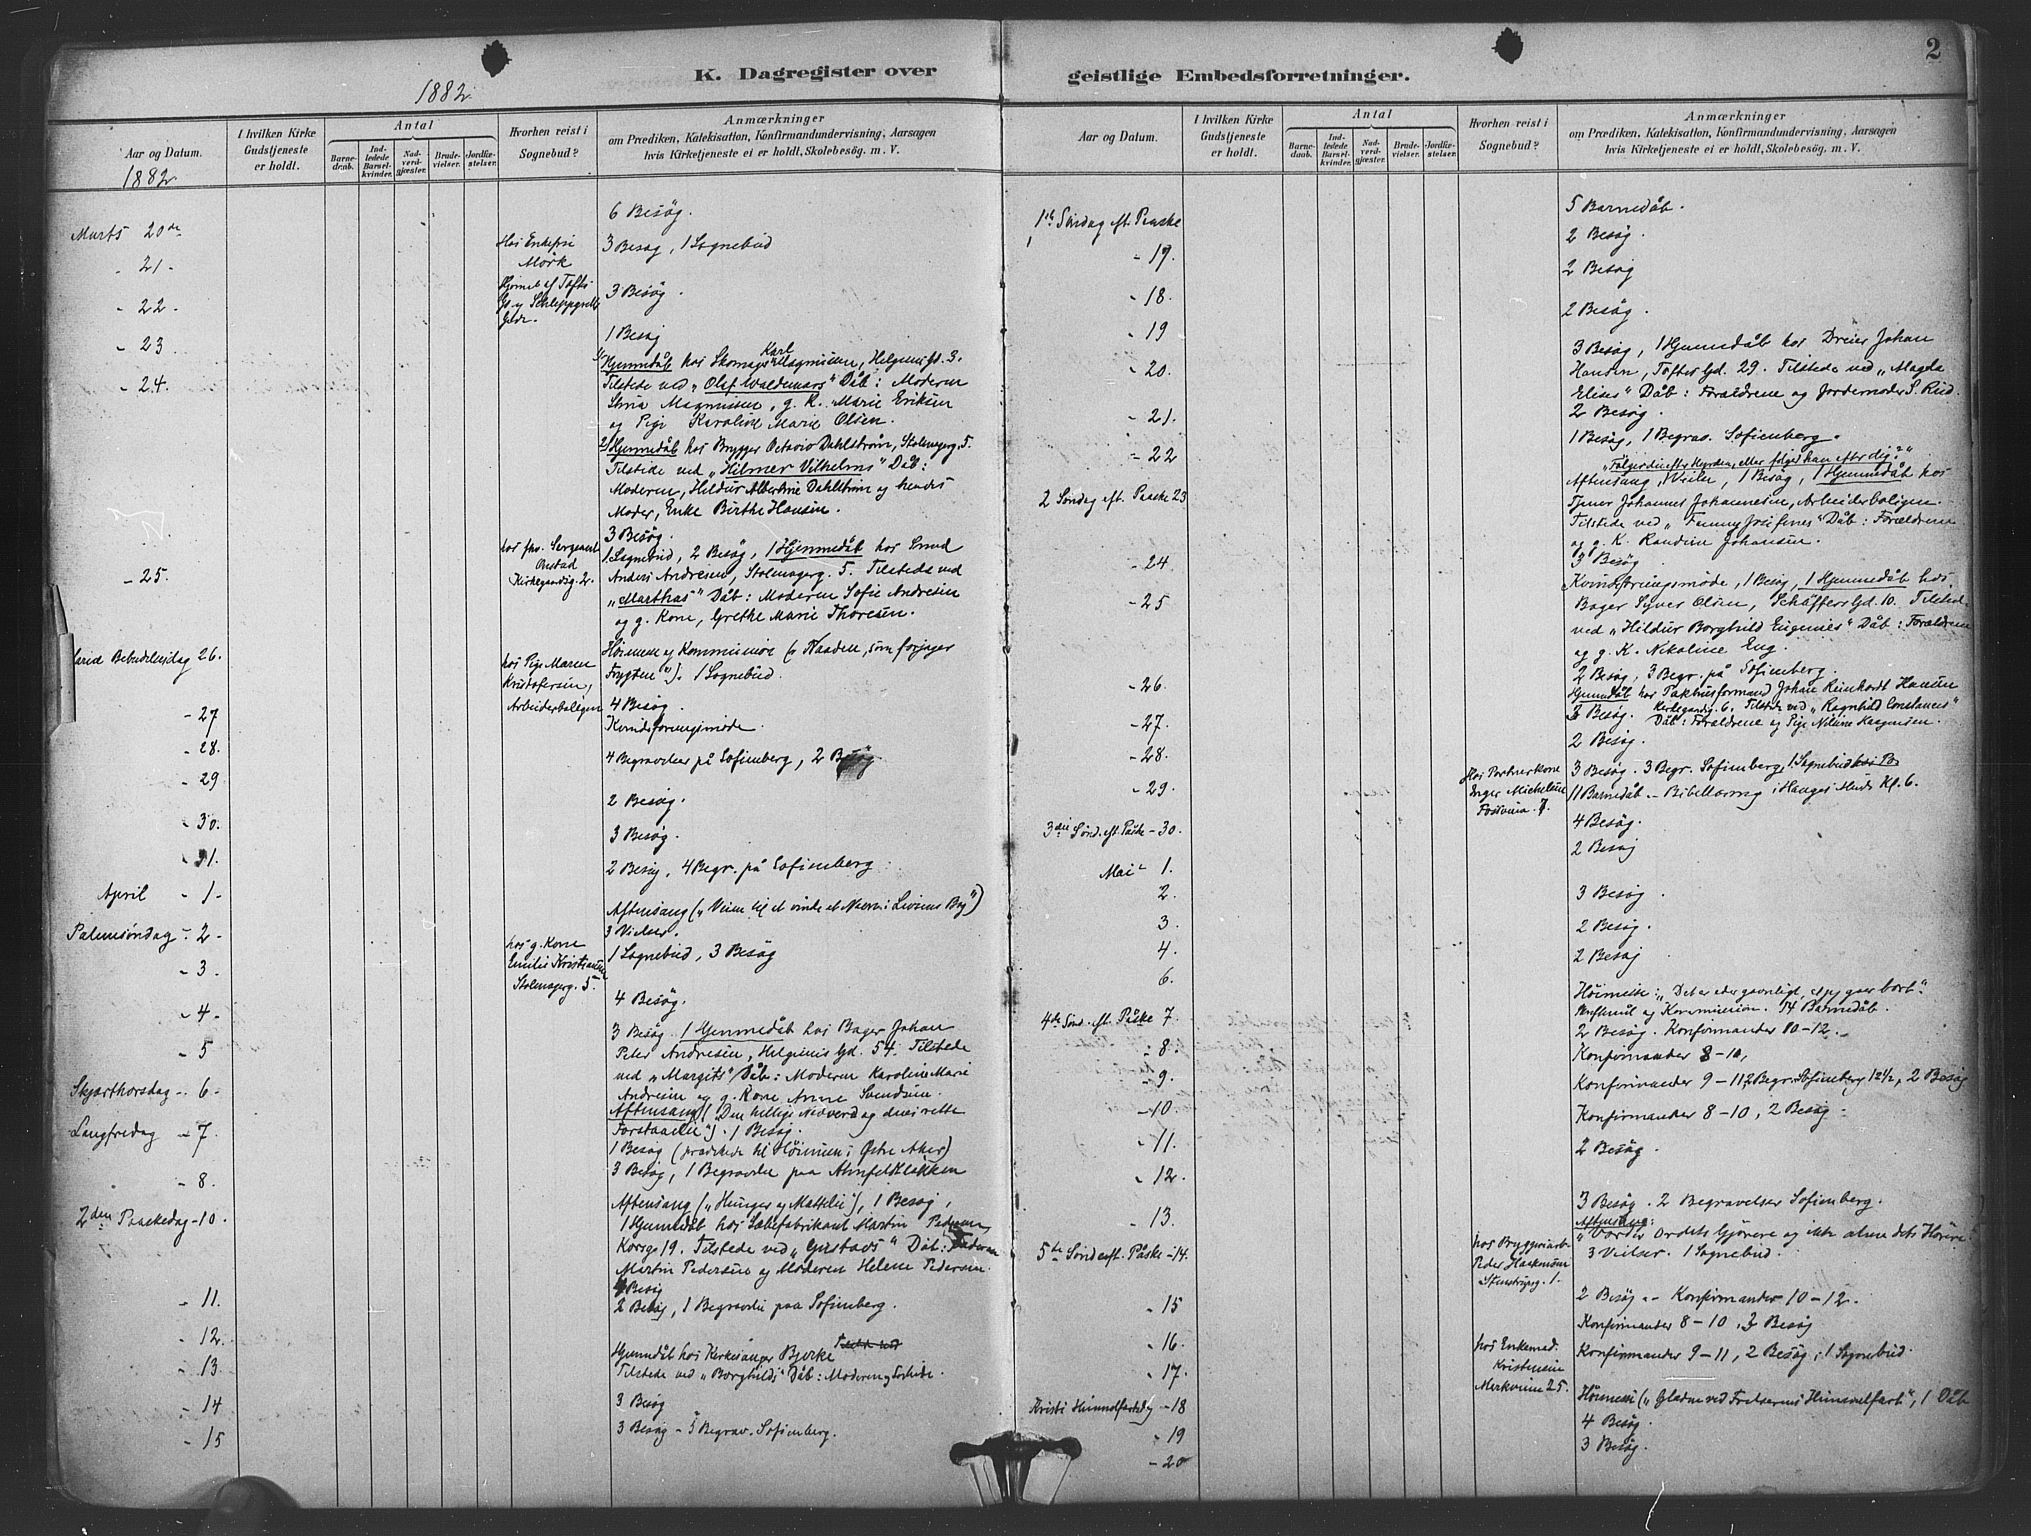 K. Dagregister over
1882
Aar og Datum.
1882
I hvilken Kirke
Gudstjeneste
er holdt.
Antal
Barne-
daab.
Ind-
ledede
Barsel-
kvinder.
Nad-
verd-
gjæster.
Brude-
vielser.
Jordfæ-
stelser.
Hvorhen reist i
Sognebud?
Anmærkninger
om Prædiken, Katekisation, Konfirmandundervisning, Aarsagen
hvis Kirketjeneste ei er holdt, Skolebesög. m. V.
6 Besög.
Marts 20de
hos Enkefru
Mörk
3 Besøg, 1 Sognebud
- 21 -
Hjörnet af Tofts
Gd og Schleppegrells
Gade.
3 Besög.
- 22 -
1 Besøg
- 23
1/ Hjemmedåb hos Skomag. Karl Magnussen, Helgensgd. 3.
- 24.
Tilstede ved "Olaf Waldemars" Dåb: Moderen
Magnussen, g. K. Marie Eriksen
og Pige Karoline Marie Olsen.
2/ Hjemmedåb hos Brygger Octavio Dahlström, Stolmagerg. 5.
Tilstede ved "Hilmer Vilhelms" Dåb:
Moderen, Hildur Albertine Dahlström og hendes
Moder, Enke Birthe Hansen.
3 Besög.
hos fhv. Sergeant
Onstad
Kirkegaardsg. 2.
1 Sognebud, 2 Besög, 1 Hjemmedåb hos Smed
- 25.
Anders Andresen, Stolmagerg. 5. Tilstede ved
"Marthas" Dåb: Moderen Sofie Andresen
og g. Kone, Grethe Marie Thoresen.
Mariæ Bebudelsesdag 26.
hos Pige Maren
Kristofersen,
Arbeiderboligen
Høimesse og Kommunion (" Naaden, som forjager
Frygten"). 1 Sognebud.
- 27
4 Besög.
Kvindeforeningsmøde.
- 28.
4 Begravelser på Sofienberg, 2 Besög
- 29
2 Besög.
- 30.
3 Besög.
- 31.
2 Besög, 4 Begr. på Sofienberg.
April - 1 -
Aftensang ("Veien til at vinde et Navn i Livsens Bog")
3 Vielser.
Palmesöndag - 2 -
hos g. Kone
Emilie Kristiansen
Stolmagerg. 5.
1 Sognebud, 3 Besög
- 3.
4 Besög.
- 4.
3 Besög. 1 Hjemmedåb hos Bager Johan
- 5
Peter Andresen, Helgesens Gd. 54. Tilstede
ved "Margits" Dåb: Moderen Karoline Marie
Skjærthorsdag - 6.
Andresen og g. Kone Anne Svendsen.
Aftensang ("Den hellige Nadverd og dens rette
Langfredag - 7.
Forstaaelse"). 1 Besög.
1 Besøg (prædikede til Höimessen i Østre Aker)
- 8.
3 Besög, 1 Begravelse paa Ahnfeldtløkken
Aftensang ("Hunger og Mættelse"), 1 Besög,
2den Paaskedag - 10.
1 Hjemmedåb hos Sæbefabrikant Martin Pedersen,
Korsgd 19. Tilstede ved "Gustavs" Dåb: Faderen
Martin Pedersen og Moderen Helene Pedersen.
4 Besög
- 11.
2 Besög, 1 Begravelse paa Sofienberg.
- 12.
Hjemmedåb hos Kirkesanger Bjerke
- 13.
Tilstede ved "Borghilds" Dåb: Moderen og
- 14
3 Besög
- 15
3 Besög - 5 Begrav. Sofienberg.
geistlige Embedsforretninger.
2
Aar og Datum.
I hvilken Kirke
Gudstjeneste
er holdt.
Antal
Barne-
daab.
Ind-
ledede
Barsel-
kvinder.
Nad-
verd-
gjæster.
Brude-
vielser.
Jordfæ-
stelser.
Hvorhen reist i
Sognebud?
Anmærkninger
om Prædiken, Katekisation, Konfirmandundervisning, Aarsagen
hvis Kirketjeneste ei er holdt, Skolebesög. m. V.
1ste Søndag eft. Paaske
5 Barnedåb.
2 Besög.
- 17.
2 Besög
- 18.
2 Besög.
- 19
3 Besög, 1 Hjemmedåb hos Dreier Johan
- 20.
Hansen, Toftes Gd. 29. Tilstede ved "Magda
Elises" Dåb: Forældrene og Jordemoder S. Rud.
- 21.
2 Besög.
- 22
1 Besög, 1 Begrav. Sofienberg.
2 Søndag eft. Paaske 23
"Følger du efter Hyrden, eller følger han efter dig?"
Aftensang, Vielser, 1 Besög, 1 Hjemmedåb hos
Tjener Johannes Johannesen, Arbeiderboligen.
Tilstede ved "Fanny Josefines" Dåb: Forældrene
og g. K. Randine Johansen.
- 24
3 Besög
- 25
Kvindeforeningsmöde, 1 Besög, 1 Hjemmedåb hos
Bager Syver Olsen, Schäffers Gd. 10. Tilstede
ved "Hildur Borghild Eugenies" Dåb: Forældrene
og g. K. Nikoline Eng.
- 26.
2 Besög, 3 Begr. på Sofienberg.
Hjemmedåb hos Pakhusformand Johan Reinhardt Hansen
Kirkegaardsg. 6. Tilstede ved "Ragnhild Constances"
- 27.
3 Besög. Dåb: Forældrene og Pige Nilsine Kaspersen.
- 28.
2 Besög.
- 29.
Hos Portnerkone
Inger Mickelsen
Fossveien. 7.
3 Besög. 3 Begr. Sofienberg, 1 Sognebud
3die Sønd. eft. Påske - 30.
11 Barnedåb - Bibellæsning i Hauges Minde Kl. 6.
Mai - 1.
4 Besög.
2.
2 Besög
3.
3 Besög
4.
2 Besög.
6.
2 Besög
4de Sønd. eft. Påske 7.
Höimesse: "Det er eder gavnligt, at jeg gaar bort".
Skriftemål og Kommunion. 14 Barnedåb.
- 8.
2 Besög. Konfirmander 10-12.
- 9.
Konfirmander 8-10,
- 10
Konfirmander 9-11, 2 Begr. Sofienberg 12½, 2 Besög
- 11.
Konfirmander 8-10, 2 Besög.
- 12.
2 Besög.
- 13.
3 Besög. 2 Begravelser Sofienberg.
5te Sönd. eft. Påske - 14.
hos Bryggeriarb.
Peder Haakensen
Stenstrupsg. 1.
Aftensang:
"Vorder Ordets Gjörere og ikke alene dets Hörere"
3 Vielser. 1 Sognebud.
- 15
2 Besög - Konfirmander 10-12.
- 16.
Konfirmander 8-10, 3 Besög
- 17.
hos Enkemad.
Kristensen
Markveien 25.
Konfirmander 9-11, 2 Besög, 1 Sognebud.
Kristi Himmelfartsdag - 18
Höimesse ("Glæden ved Frelserens Himmelfart"), 1 Dåb
- 19
4 Besög.
- 20
3 Besög.